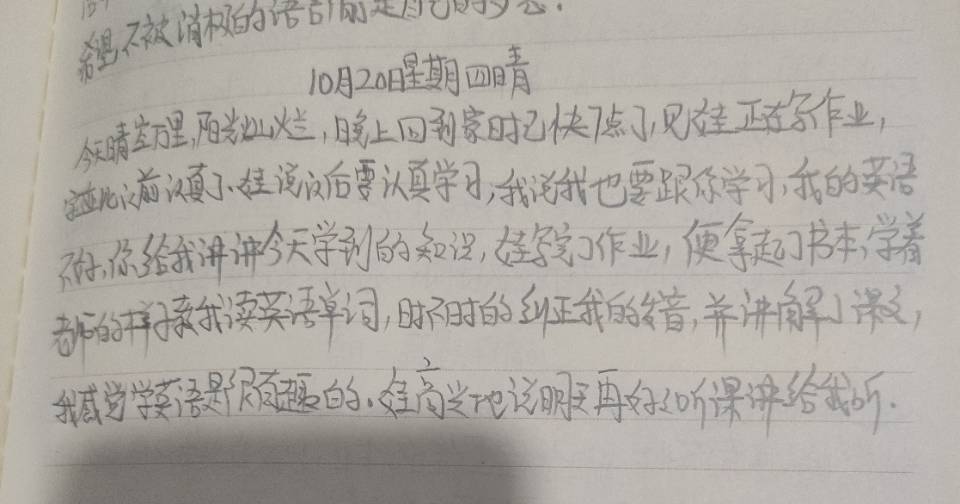 希望不被消极的语言
10月20日星期四晴
今天晴空万里,阳光灿烂,晚上回到家时已快7点了,见娃正在写作业,
字迹比以前认真了、娃说以后要认真学习,我说我也要跟你学习,我的英语
不好,你给我讲讲今天学到的知识,娃写完了作业,便拿起了书本,学着
老师的样子教我读英语单词,时不时的纠正我的发音,并讲解了课文,
我感觉学英语是很有趣的、娃高兴地说明天再好好听课讲给我听.